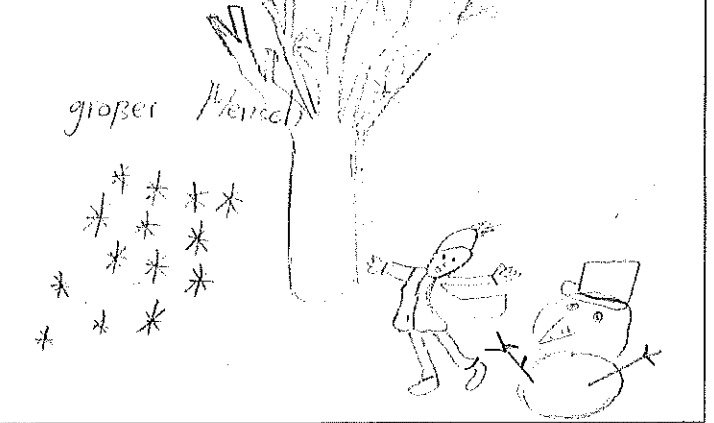 großer Mensch